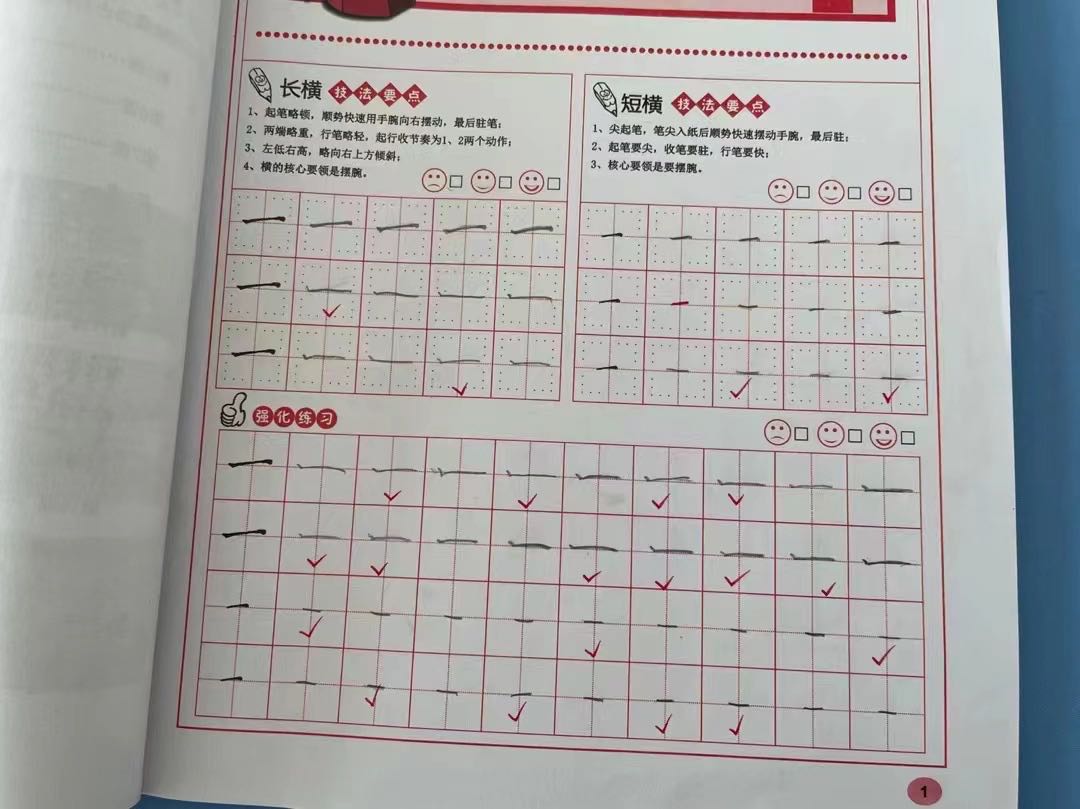 长横 技法要点
1、起笔略顿，顺势快速用手腕向右摆动，最后驻笔；
2、两端略重，行笔略轻，起行收节奏为1、2两个动作；
3、左低右高，略向右上方倾斜；
4、横的核心要领是摆腕。
短横 技法要点
1、尖起笔，笔尖入纸后顺势快速摆动手腕，最后驻；
2、起笔要尖，收笔要驻，行笔要快；
3、核心要领是要摆腕。
强化练习
1